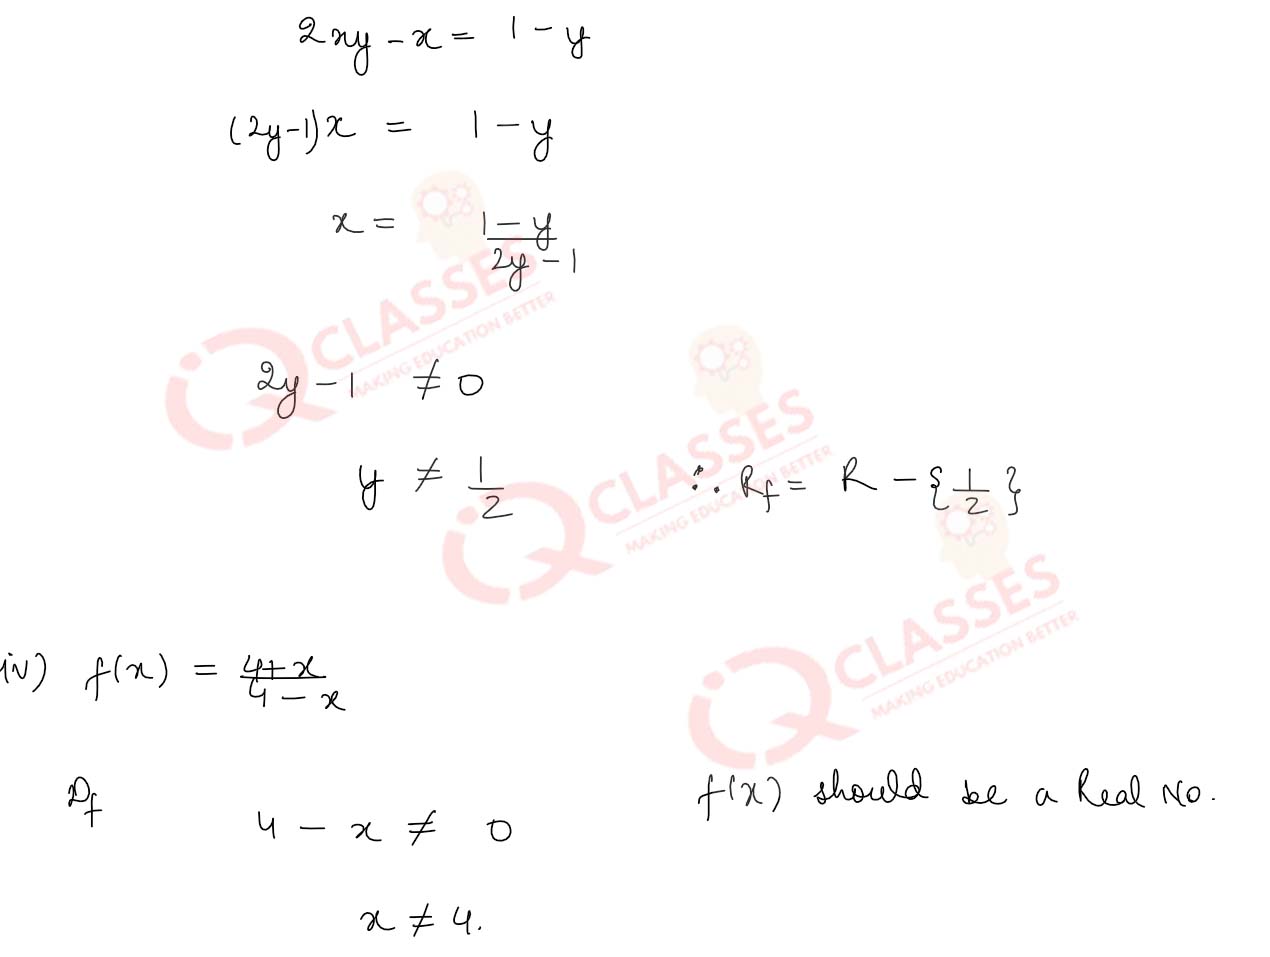 2xy - x = 1 - y
(2y-1)x = 1 - y
x = 1 - y / 2y - 1
2y - 1 ≠ 0
y ≠ 1/2 ∴ Rf = R - {1/2}
iv) f(x) = 4+x / 4-x
Df f(x) should be a Real No.
4 - x ≠ 0
x ≠ 4.
iQ CLASSES
MAKING EDUCATION BETTER
iQ CLASSES
MAKING EDUCATION BETTER
iQ CLASSES
MAKING EDUCATION BETTER